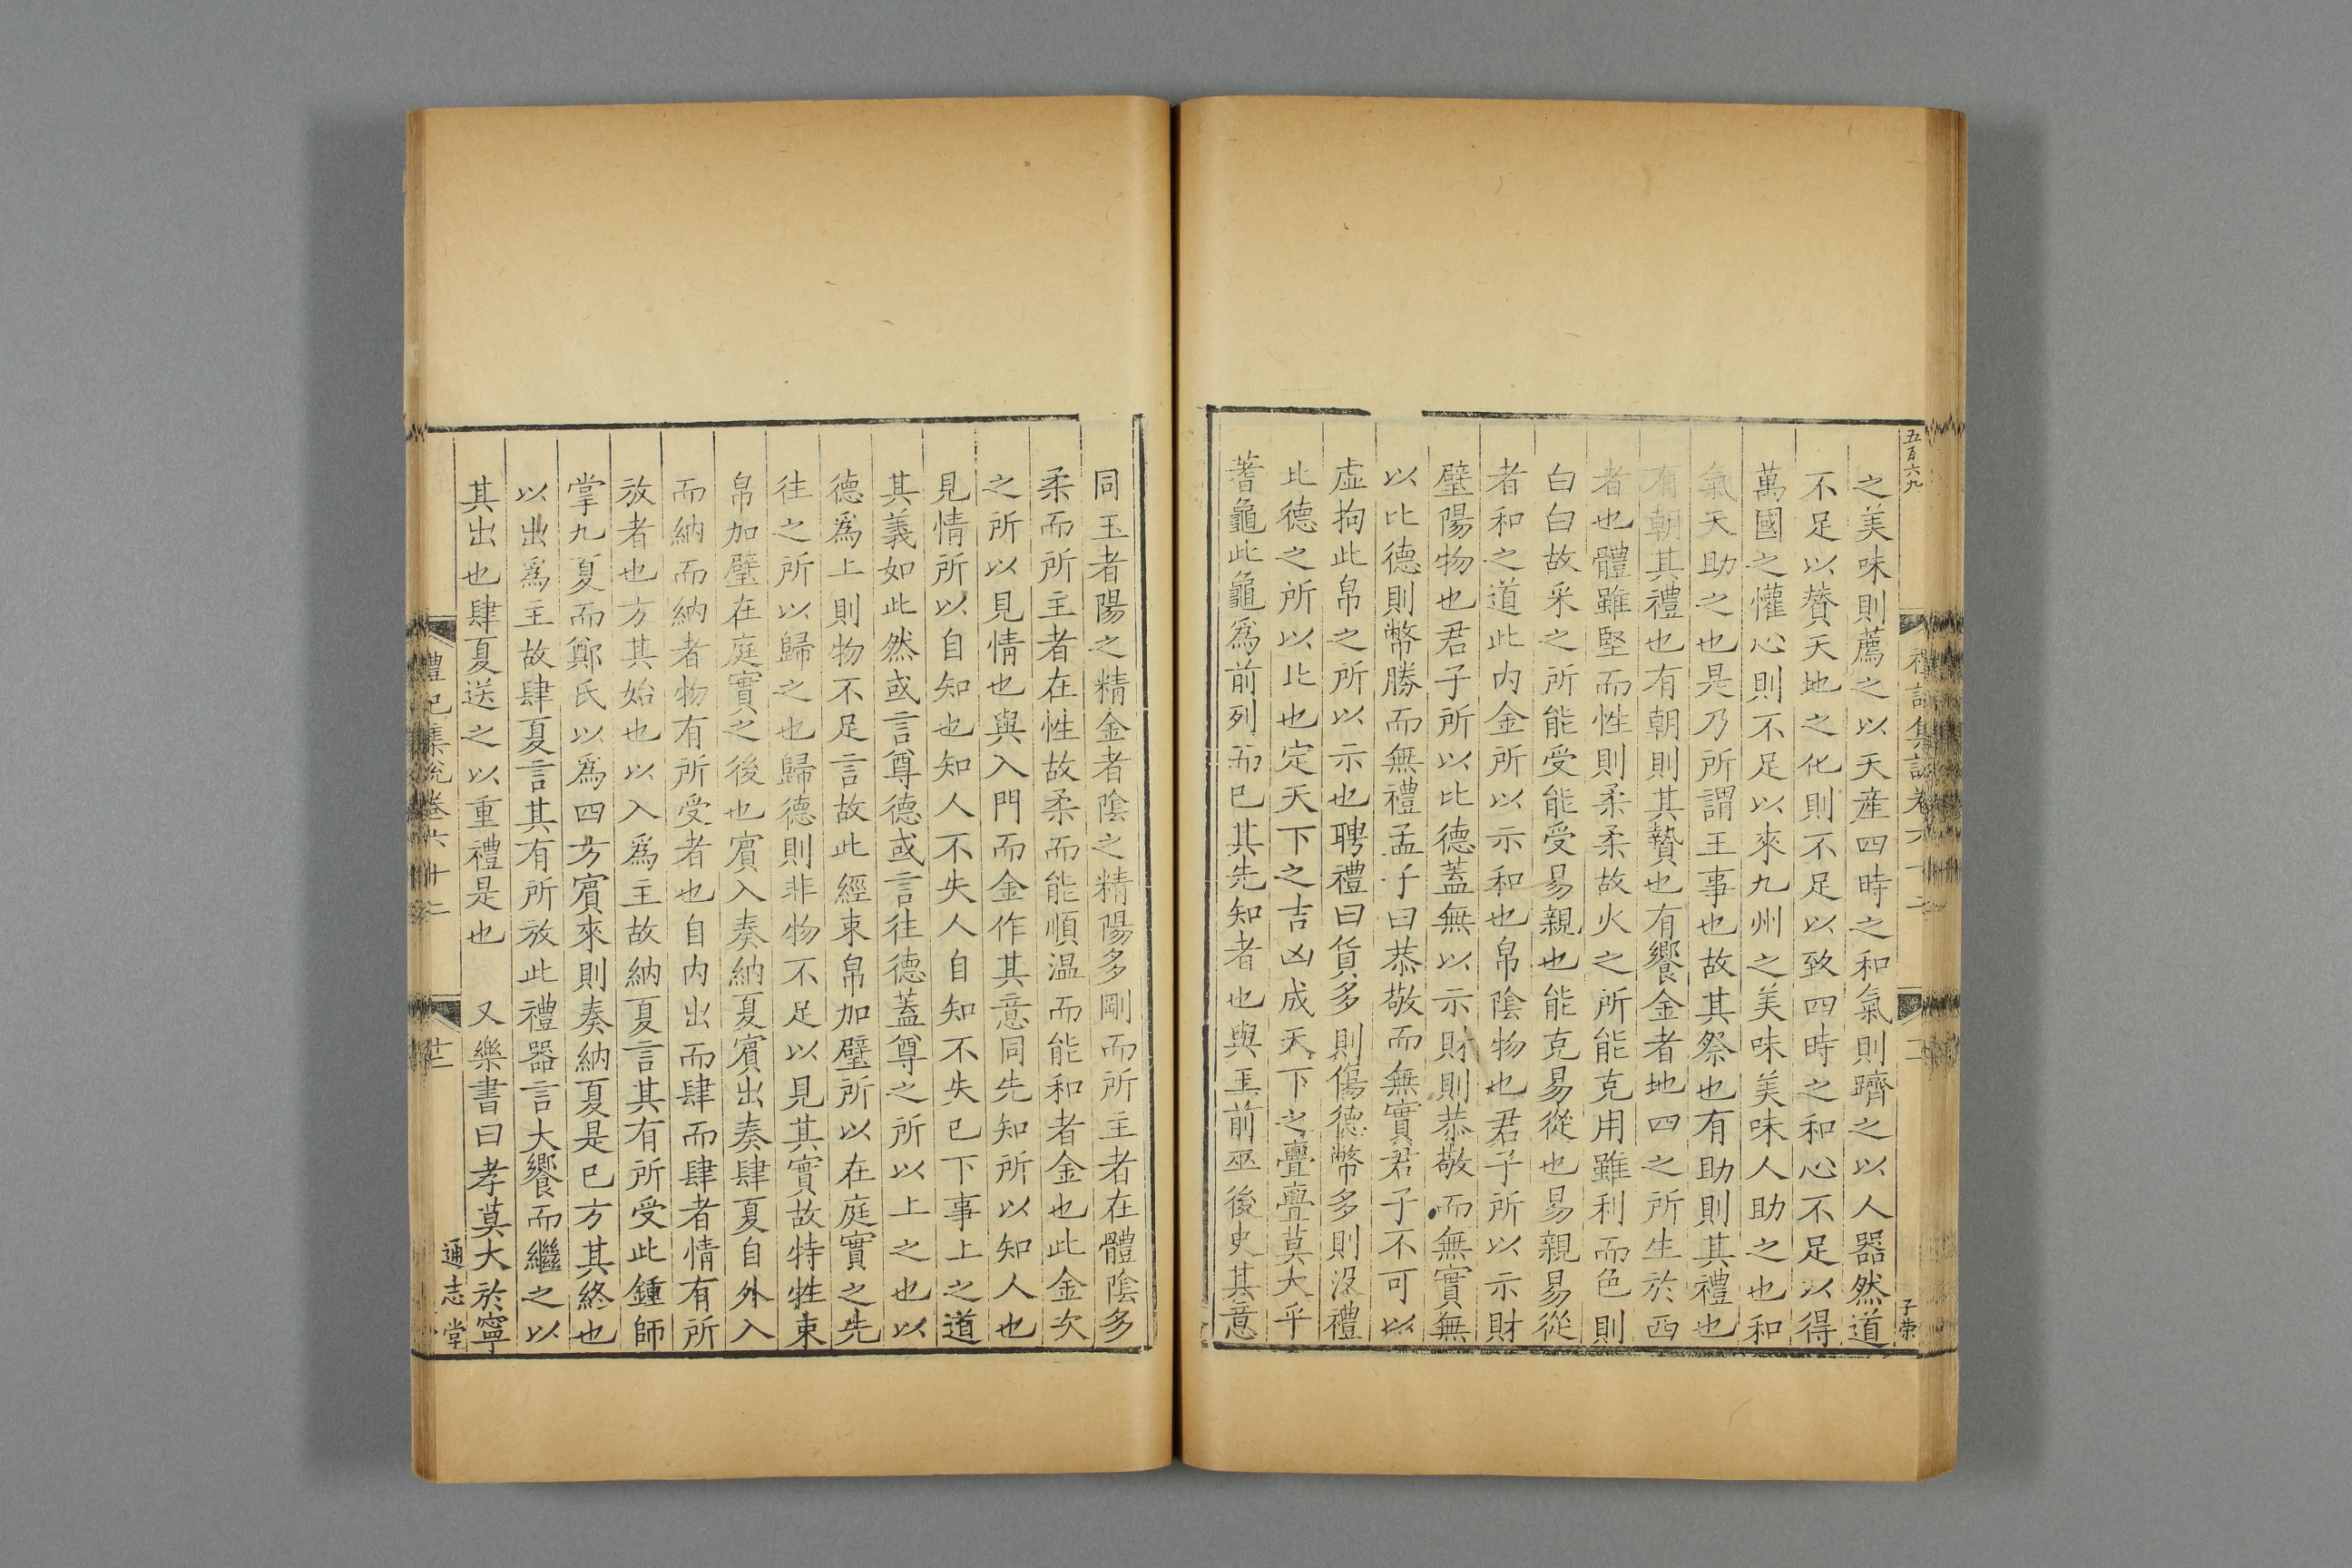 五百六九
子荣
之美味則薦之以天産四時之和氣則躋之以人器然道
不足以賛天地之化則不足以致四時之和心不足以得
萬國之懽心則不足以來九州之美味美味人助之也和
氣天助之也是乃所謂王事也故其祭也有助則其禮也
有朝其禮也有朝則其贄也有饗金者地四之所生於西
者也體雖堅而性則柔柔故火之所能克用雖利而色則
白白故采之所能受能受易親也能克易從也易親易從
者和之道此内金所以示和也帛陰物也君子所以示財
璧陽物也君子所以比德蓋無以示財則恭敬而無實無
以比德則幣勝而無禮孟子曰恭敬而無實君子不可以
虛拘此帛之所以示也聘禮曰貨多則傷德幣多則没禮
比德之所以比也定天下之吉凶成天下之亹亹莫大乎
蓍龜此龜爲前列而已其先知者也與王前巫後史其意
同玉者陽之精金者陰之精陽多剛而所主者在體陰多
柔而所主者在性故柔而能順温而能和者金也此金次
之所以見情也與入門而金作其意同先知所以知人也
見情所以自知也知人不失人自知不失已下事上之道
其義如此然或言尊德或言往德蓋尊之所以上之也以
德爲上則物不足言故此經束帛加璧所以在庭實之先
往之所以歸之也歸德則非物不足以見其實故特牲束
帛加璧在庭實之後也賓入奏納夏賓出奏肆夏自外入
而納而納者物有所受者也自内出而肆而肆者情有所
放者也方其始也以入爲主故納夏言其有所受此鍾師
掌九夏而鄭氏以爲四方賓來則奏納夏是已方其終也
以出爲主故肆夏言其有所放此禮器言大饗而繼之以
其出也肆夏送之以重禮是也　又樂書曰孝莫大於寧
禮記集說卷六十二
通志堂